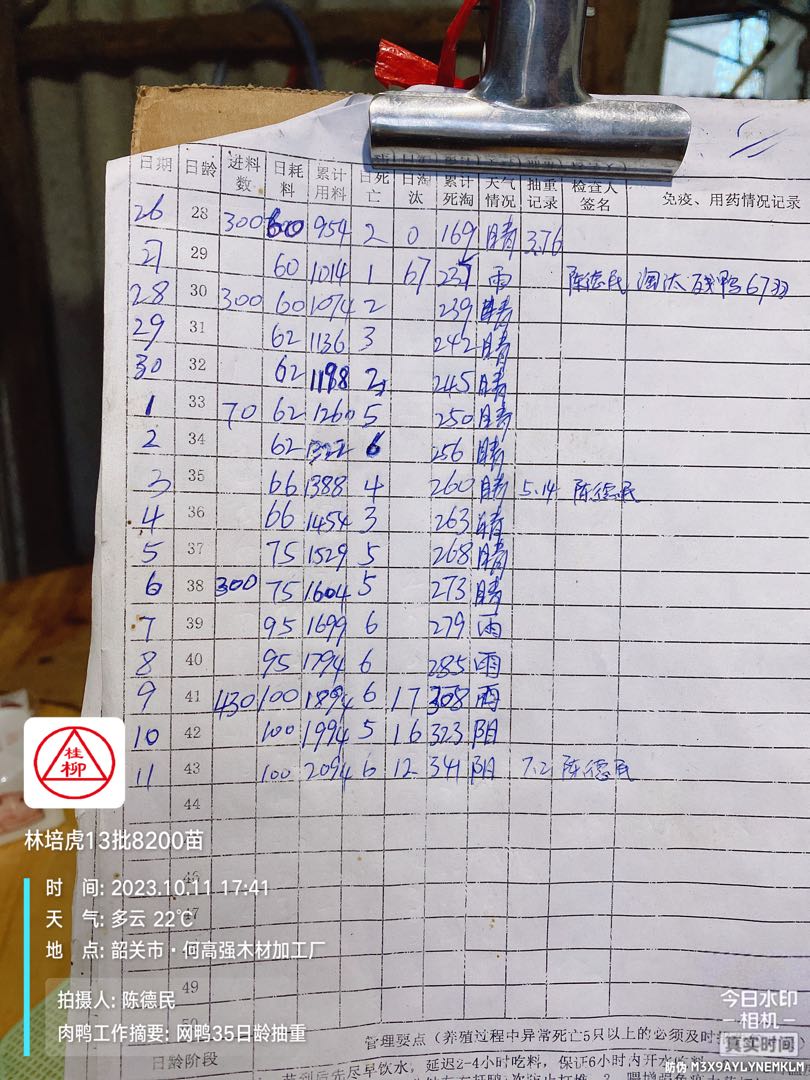 日期 日龄 进料数 日耗料 累计用料 日死亡 日淘汰 累计死淘 天气情况 抽重记录 检查人签名 免疫、用药情况记录
26 28 300 60 954 2 0 169 晴 3.76
27 29 60 1014 1 67 237 雨 陈德民 淘汰残鸭67羽
28 30 300 60 1074 2 239 晴
29 31 62 1136 3 242 晴
30 32 62 1198 245 晴
1 33 70 62 1260 5 250 晴
2 34 62 1322 6 256 晴
3 35 66 1388 4 260 晴 5.14 陈德民
4 36 66 1454 3 263 晴
5 37 75 1529 5 268 晴
6 38 300 75 1604 5 273 晴
7 39 95 1699 6 279 雨
8 40 95 1794 6 285 雨
9 41 430 100 1894 6 17 308 雨
10 42 100 1994 5 16 323 阴
11 43 100 2094 6 12 341 阴 7.2 陈德民
44
46
47
49
50
日龄阶段
管理要点（养殖过程中异常死亡5只以上的必须及时
苗到后先尽早饮水，延迟2-4小时吃料，保证6小时内开水吃料
桂柳
林培虎13批8200苗
时 间: 2023.10.11 17:41
天 气: 多云 22℃
地 点: 韶关市·何高强木材加工厂
拍摄人: 陈德民
肉鸭工作摘要: 网鸭35日龄抽重
今日水印
相机
真实时间
防伪 M3X9AYLYNEMKLM